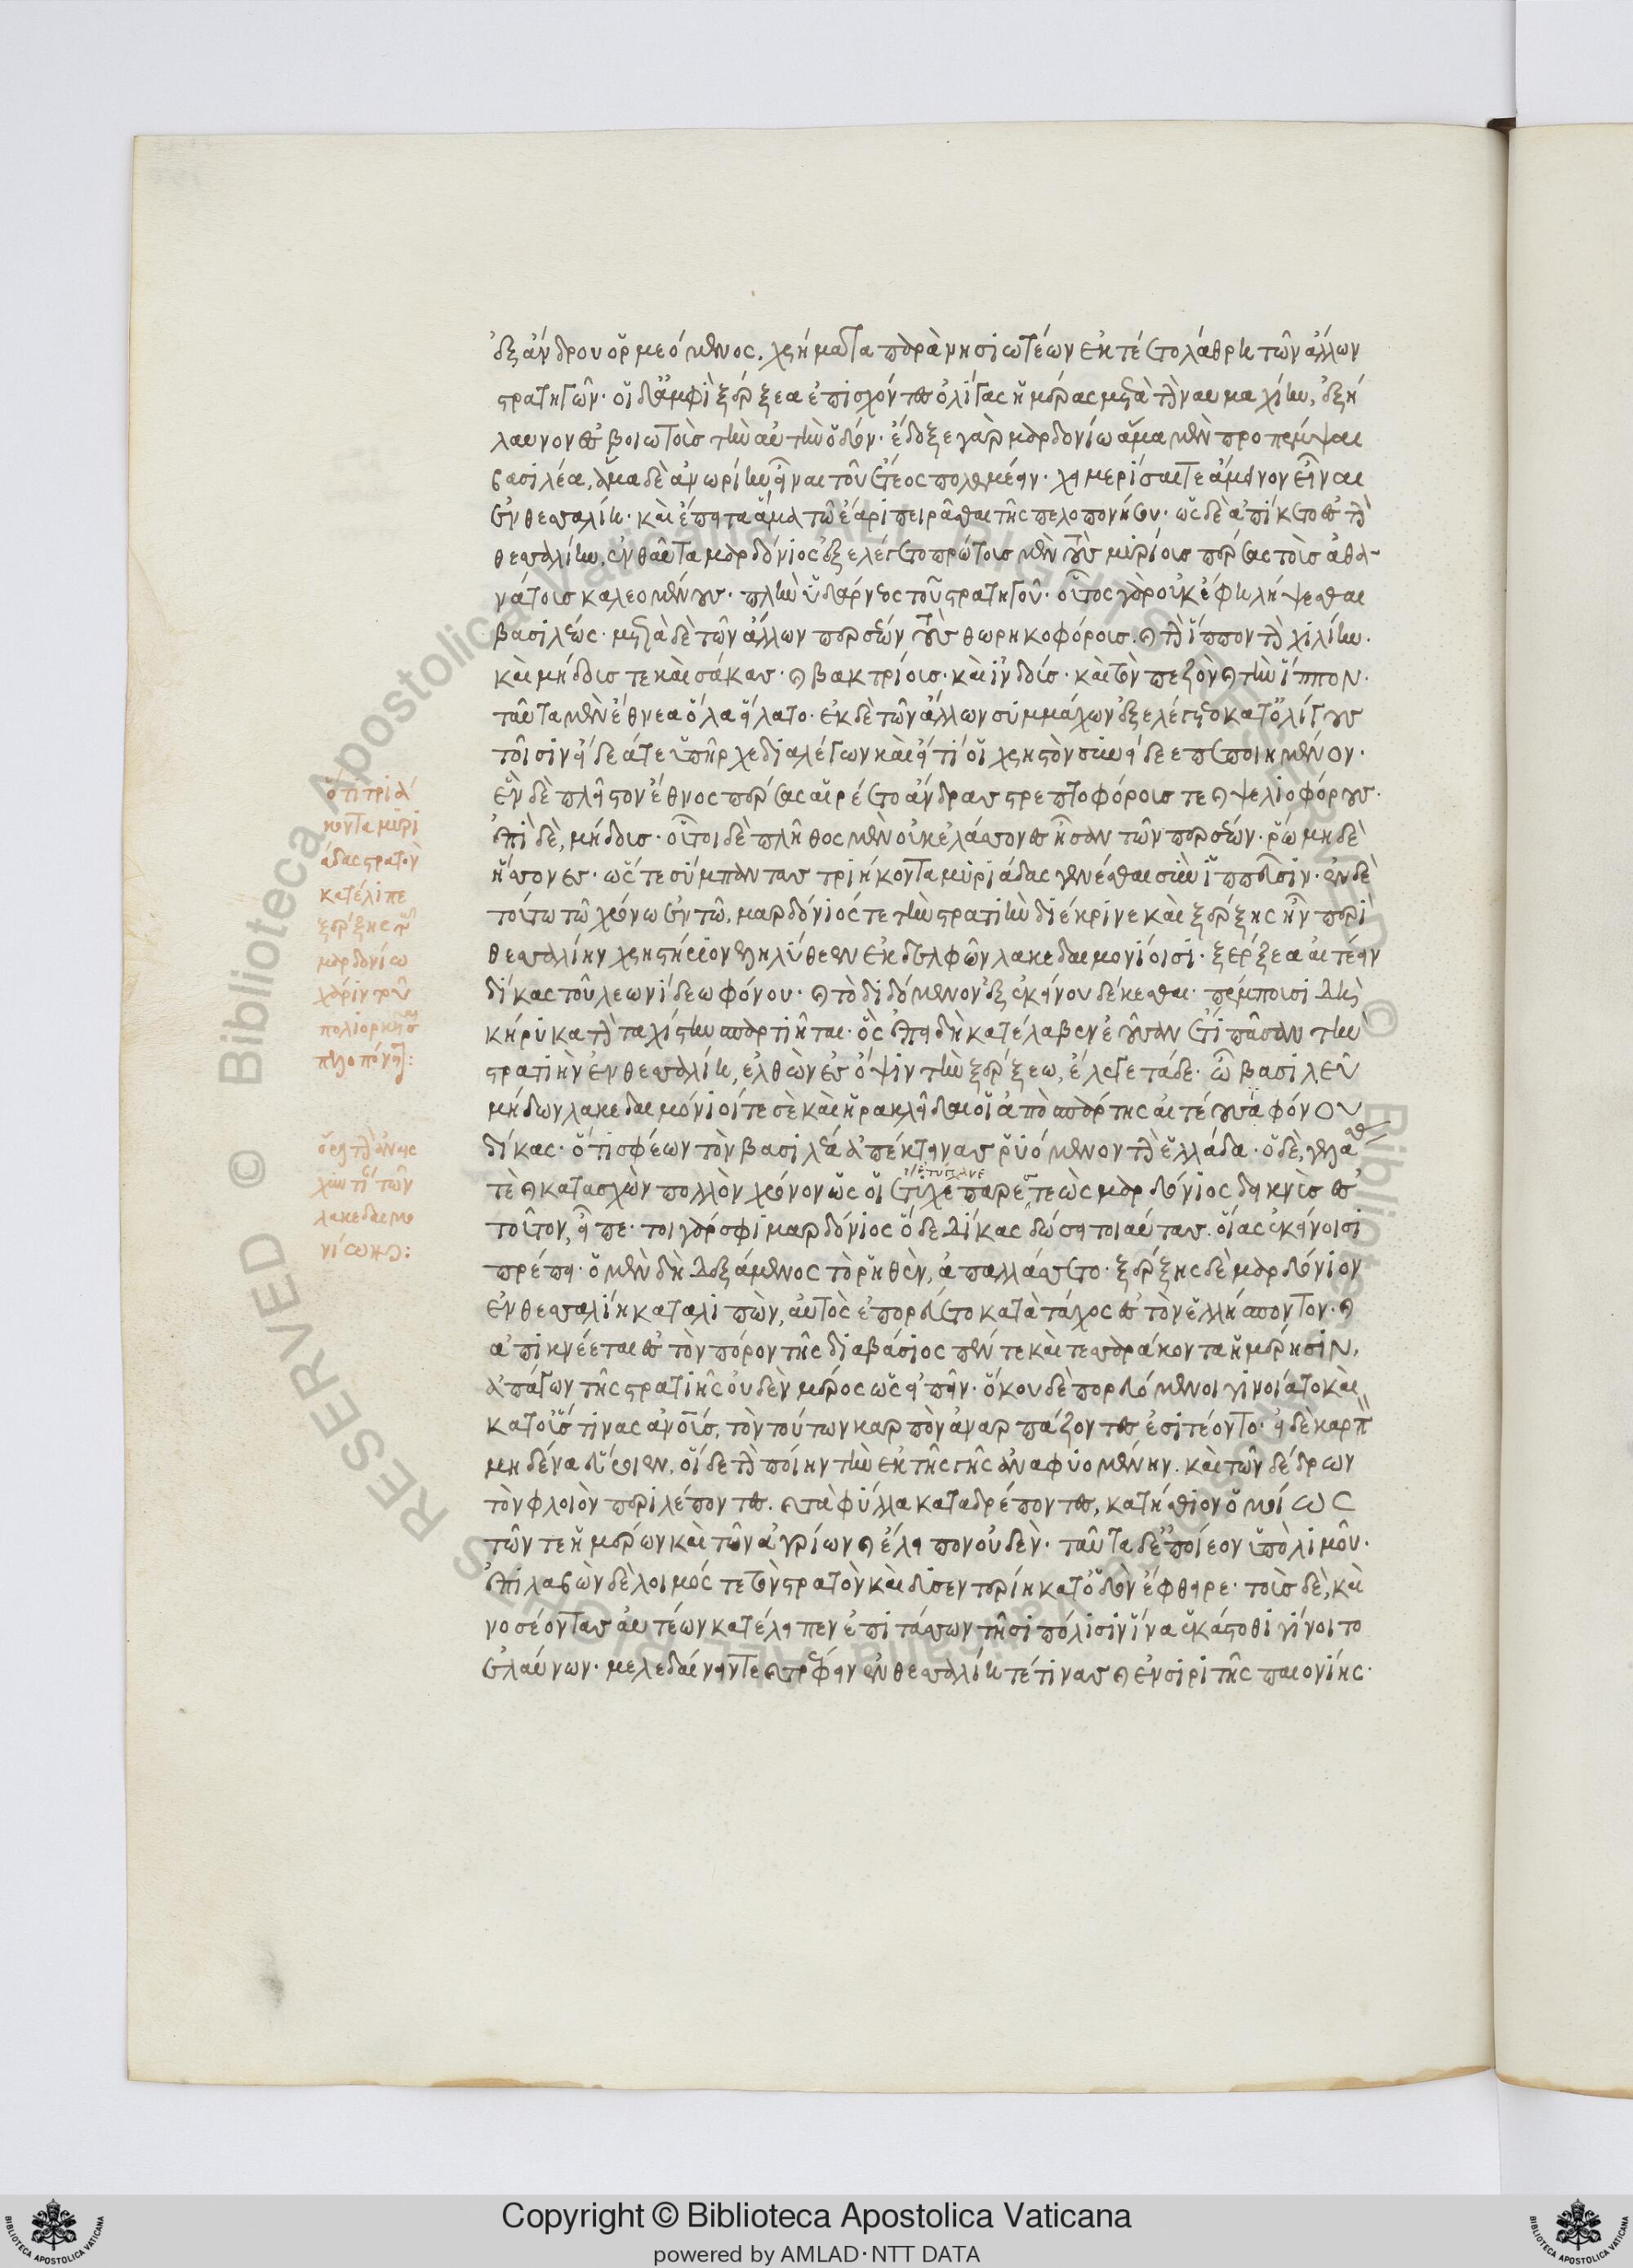 ἐξ ἄνδρου ὁρμεόμενος. χρήματα παρὰ νησιωτέων ἐκτέετο λάθρη τῶν ἄλλων
στρατηγῶν· οἱ δ' ἀμφὶ ξέρξεα ἐπισχόντες ὀλίγας ἡμέρας μετὰ τὴν ναυμαχίην, ἐξή
λαυνον ἐς βοιωτοὺς τὴν αὐτὴν ὁδόν· ἔδοξε γὰρ μαρδονίω ἅμα μὲν προπέμψαι
βασιλέα, ἅμα δὲ ἀνωρίην εἶναι τοῦ ἔτεος πολεμέειν· χειμερίσαι τε ἄμεινον εἶναι
ἐν θεσσαλίη· καὶ ἔπειτα ἅμα τῶ ἔαρι πειρᾶσθαι τῆς πελοπονήσου· ὡς δὲ ἀπίκετο ἐς τὴν
θεσσαλίην, ἐνθαῦτα μαρδόνιος ἐξελέγετο πρώτους μὲν τοὺς μυρίους πέρσας τοὺς ἀθα-
νάτους καλεομένους· πλὴν ὑδάρνεος τοῦ στρατηγοῦ· οὗτος γὰρ οὐκ ἔφη λήψεσθαι
βασιλέως· μετὰ δὲ τῶν ἄλλων περσέων τοὺς θωρηκοφόρους· καὶ τὴν ἵππον τὴν χιλίην.
καὶ μήδους τε καὶ σάκας· καὶ βακτρίους· καὶ ἰνδούς· καὶ τὸν πεζὸν καὶ τὴν ἵππον.
ταῦτα μὲν ἔθνεα ὅλα εἵλατο· ἐκ δὲ τῶν ἄλλων συμμάχων ἐξελέγετο κατ' ὀλίγους
τοῖσιν εἴδεά τε ὑπῆρχε διαλέγων καὶ εἴ τί οἱ χρηστὸν συνείδεε πεποιημένον.
ἓν δὲ πλεῖστον ἔθνος πέρσας αἱρέετο ἄνδρας στρεπτοφόρους τε καὶ ψελιοφόρους.
ἐπὶ δὲ, μήδους· οὗτοι δὲ πλῆθος μὲν οὐκ ἐλάσσονες ἦσαν τῶν περσέων· ῥώμη δὲ
ἥσσονες· ὥστε σύμπαντας τριήκοντα μυριάδας γενέσθαι σὺν ἱππεῦσιν· ἐν δὲ
τούτω τῶ χρόνω ἐν τῶ, μαρδόνιός τε τὴν στρατιὴν διέκρινε καὶ ξέρξης ἦν περὶ
θεσσαλίην χρηστήριον ἐληλύθεεν ἐκ δελφῶν λακεδαιμονίοισι· ξέρξεα αἰτέειν
δίκας τοῦ λεωνίδεω φόνου· καὶ τὸ διδόμενον ἐξ ἐκείνου δέκεσθαι· πέμπουσι δὴ
κήρυκα τὴν ταχίστην σπαρτιῆται· ὃς ἐπειδὴ κατέλαβεν ἐοῦσαν ἔτι πᾶσαν τὴν
στρατιὴν ἐν θεσσαλίη, ἐλθὼν ἐς ὄψιν τὴν ξέρξεω, ἔλεγε τάδε· ὦ βασιλεῦ
μήδων λακεδαιμόνιοί τε σὲ καὶ ἡρακλεῖδαι οἱ ἀπὸ σπάρτης αἰτέουσι φόνου
δίκας· ὅτι σφέων τὸν βασιλέα ἀπέκτεινας ῥυόμενον τὴν ἑλλάδα· ὁ δὲ, γελά
τε καὶ κατασχὼν πολλὸν χρόνον ὥς οἱ ἐτύγχανε παρεστεὼς μαρδόνιος δεικνὺς ἐς
τοῦτον, εἶπε· τοιγάρ σφι μαρδόνιος ὅδε δίκας δώσει τοιαύτας· οἵας ἐκείνοισι
πρέπει· ὁ μὲν δὴ δεξάμενος τὸ ῥηθὲν, ἀπαλλάσσετο· ξέρξης δὲ μαρδόνιον
ἐν θεσσαλίη καταλιπὼν, αὐτὸς ἐπορεύετο κατὰ τάχος ἐς τὸν ἑλλήσποντον· καὶ
ἀπικνέεται ἐς τὸν πόρον τῆς διαβάσιος πέντε καὶ τεσσαράκοντα ἡμέρησιν,
ἀπάγων τῆς στρατιῆς οὐδὲν μέρος ὡς εἰπεῖν· ὅκου δὲ πορευόμενοι γινοίατο καὶ
κατ' οὕστινας ἀνθρώπους, τὸν τούτων καρπὸν ἀναρπάζοντες ἐσιτέοντο· εἰ δὲ καρπὸν
μηδένα εὕροιεν, οἱ δὲ τὴν ποίην τὴν ἐκ τῆς γῆς ἀναφυομένην· καὶ τῶν δένδρων
τὸν φλοιὸν περιλέποντες· καὶ τὰ φύλλα καταδρέποντες, κατήσθιον ὁμοίως
τῶν τε ἡμέρων καὶ τῶν ἀγρίων καὶ ἔλειπον οὐδὲν· ταῦτα δ' ἐποίεον ὑπὸ λιμοῦ·
ἐπιλαβὼν δὲ λοιμός τε τὸν στρατὸν καὶ δυσεντερίη κατ' ὁδὸν ἔφθειρε· τοὺς δὲ, καὶ
νοσέοντας αὐτέων κατέλειπεν ἐπιτάσσων τῆσι πόλισιν ἵνα ἑκάστοθι γίνοιτο
ἐλαύνων· μελεδαίνειν τε καὶ τρέφειν ἐν θεσσαλίη τέ τινας καὶ ἐν σίρι τῆς παιονίης·
ὅτι τριά
κοντα μυρι
άδας στρατοῦ
κατέλιπε
ξέρξης
μαρδονίω
χάριν τοῦ
πολιορκῆσαι
πελοπόν:
λακεδαιμο
νίων:
Copyright © Biblioteca Apostolica Vaticana
powered by AMLAD·NTT DATA